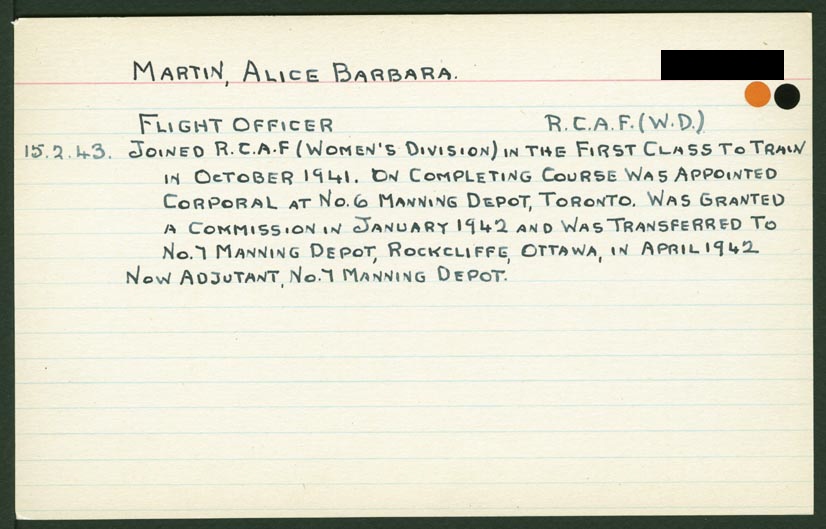 MARTIN, ALICE BARBARA.
FLIGHT OFFICER R.C.A.F. (W.D.)
15.2.43. JOINED R.C.A.F (WOMEN'S DIVISION) IN THE FIRST CLASS TO TRAIN
IN OCTOBER 1941. ON COMPLETING COURSE WAS APPOINTED
CORPORAL AT NO.6 MANNING DEPOT, TORONTO. WAS GRANTED
A COMMISSION IN JANUARY 1942 AND WAS TRANSFERRED TO
NO.7 MANNING DEPOT, ROCKCLIFFE, OTTAWA, IN APRIL 1942
NOW ADJUTANT, NO.7 MANNING DEPOT.